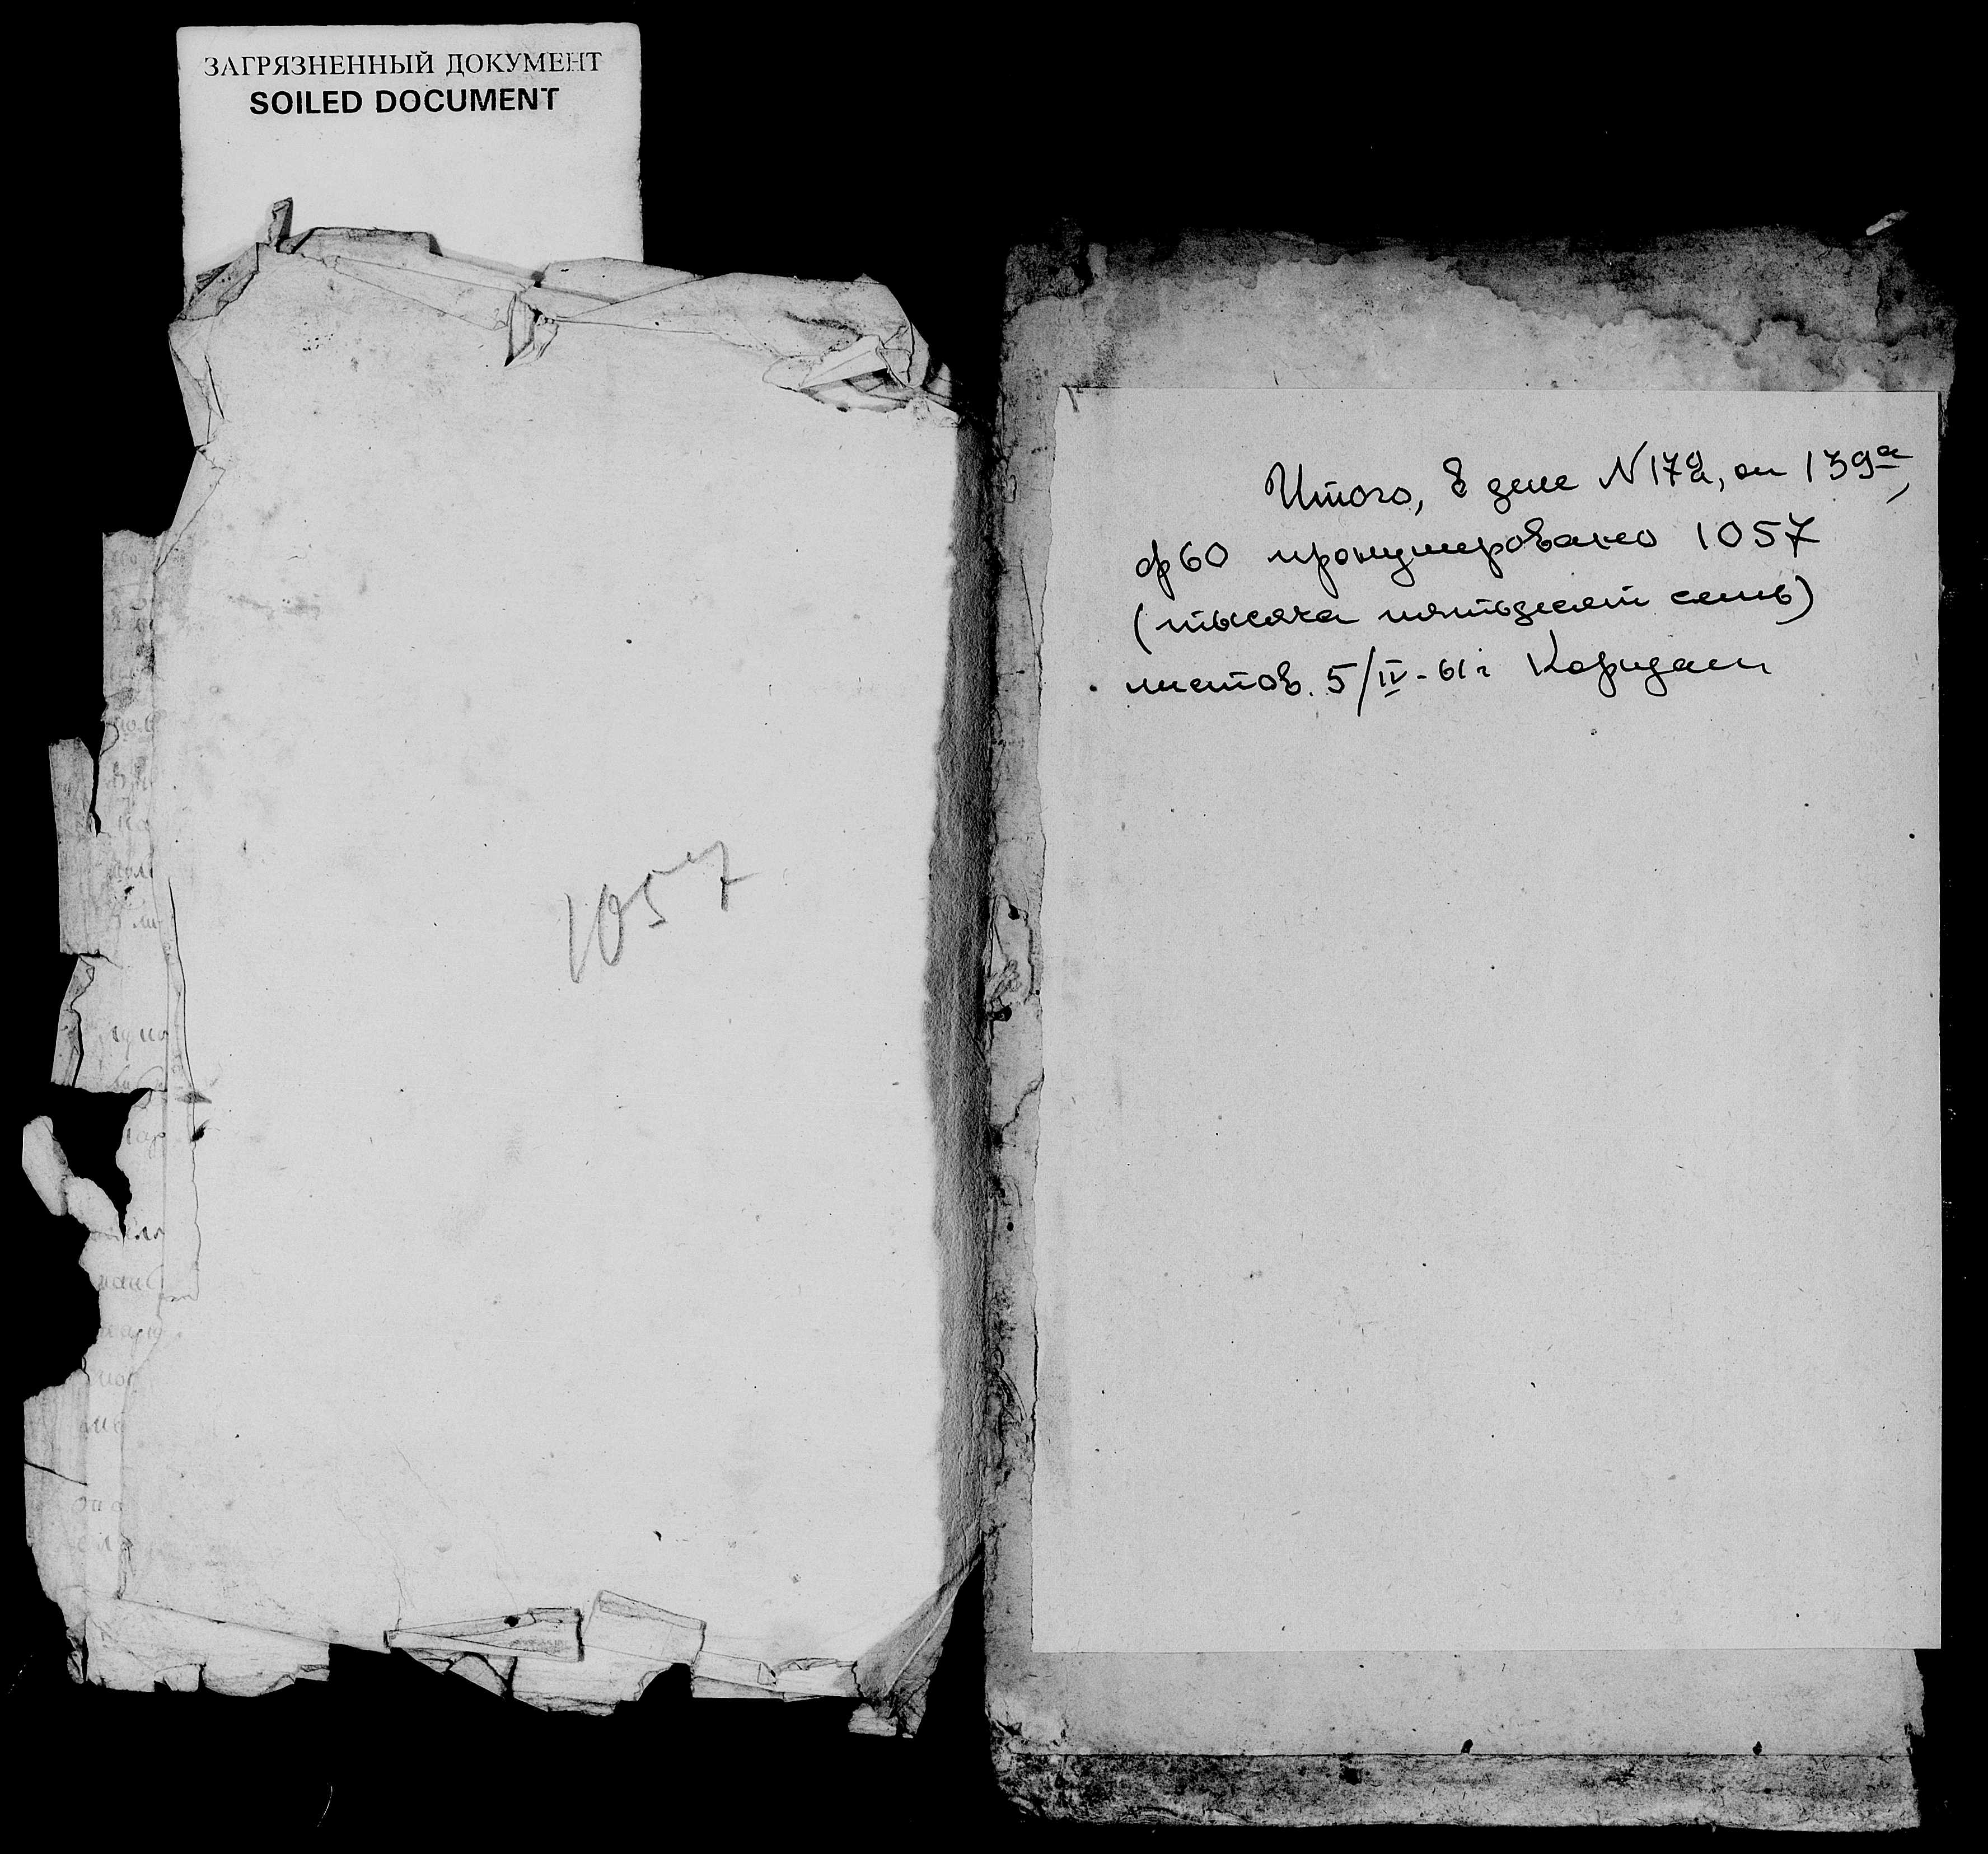 ЗАГРЯЗНЕННЫЙ ДОКУМЕНТ
SOILED DOCUMENT
1057
Итого, в деле N 172, оп 139а,
ф 60 пронумеровано 1057
(тысяча пятьдесят семь)
листов. 5/IV-61г